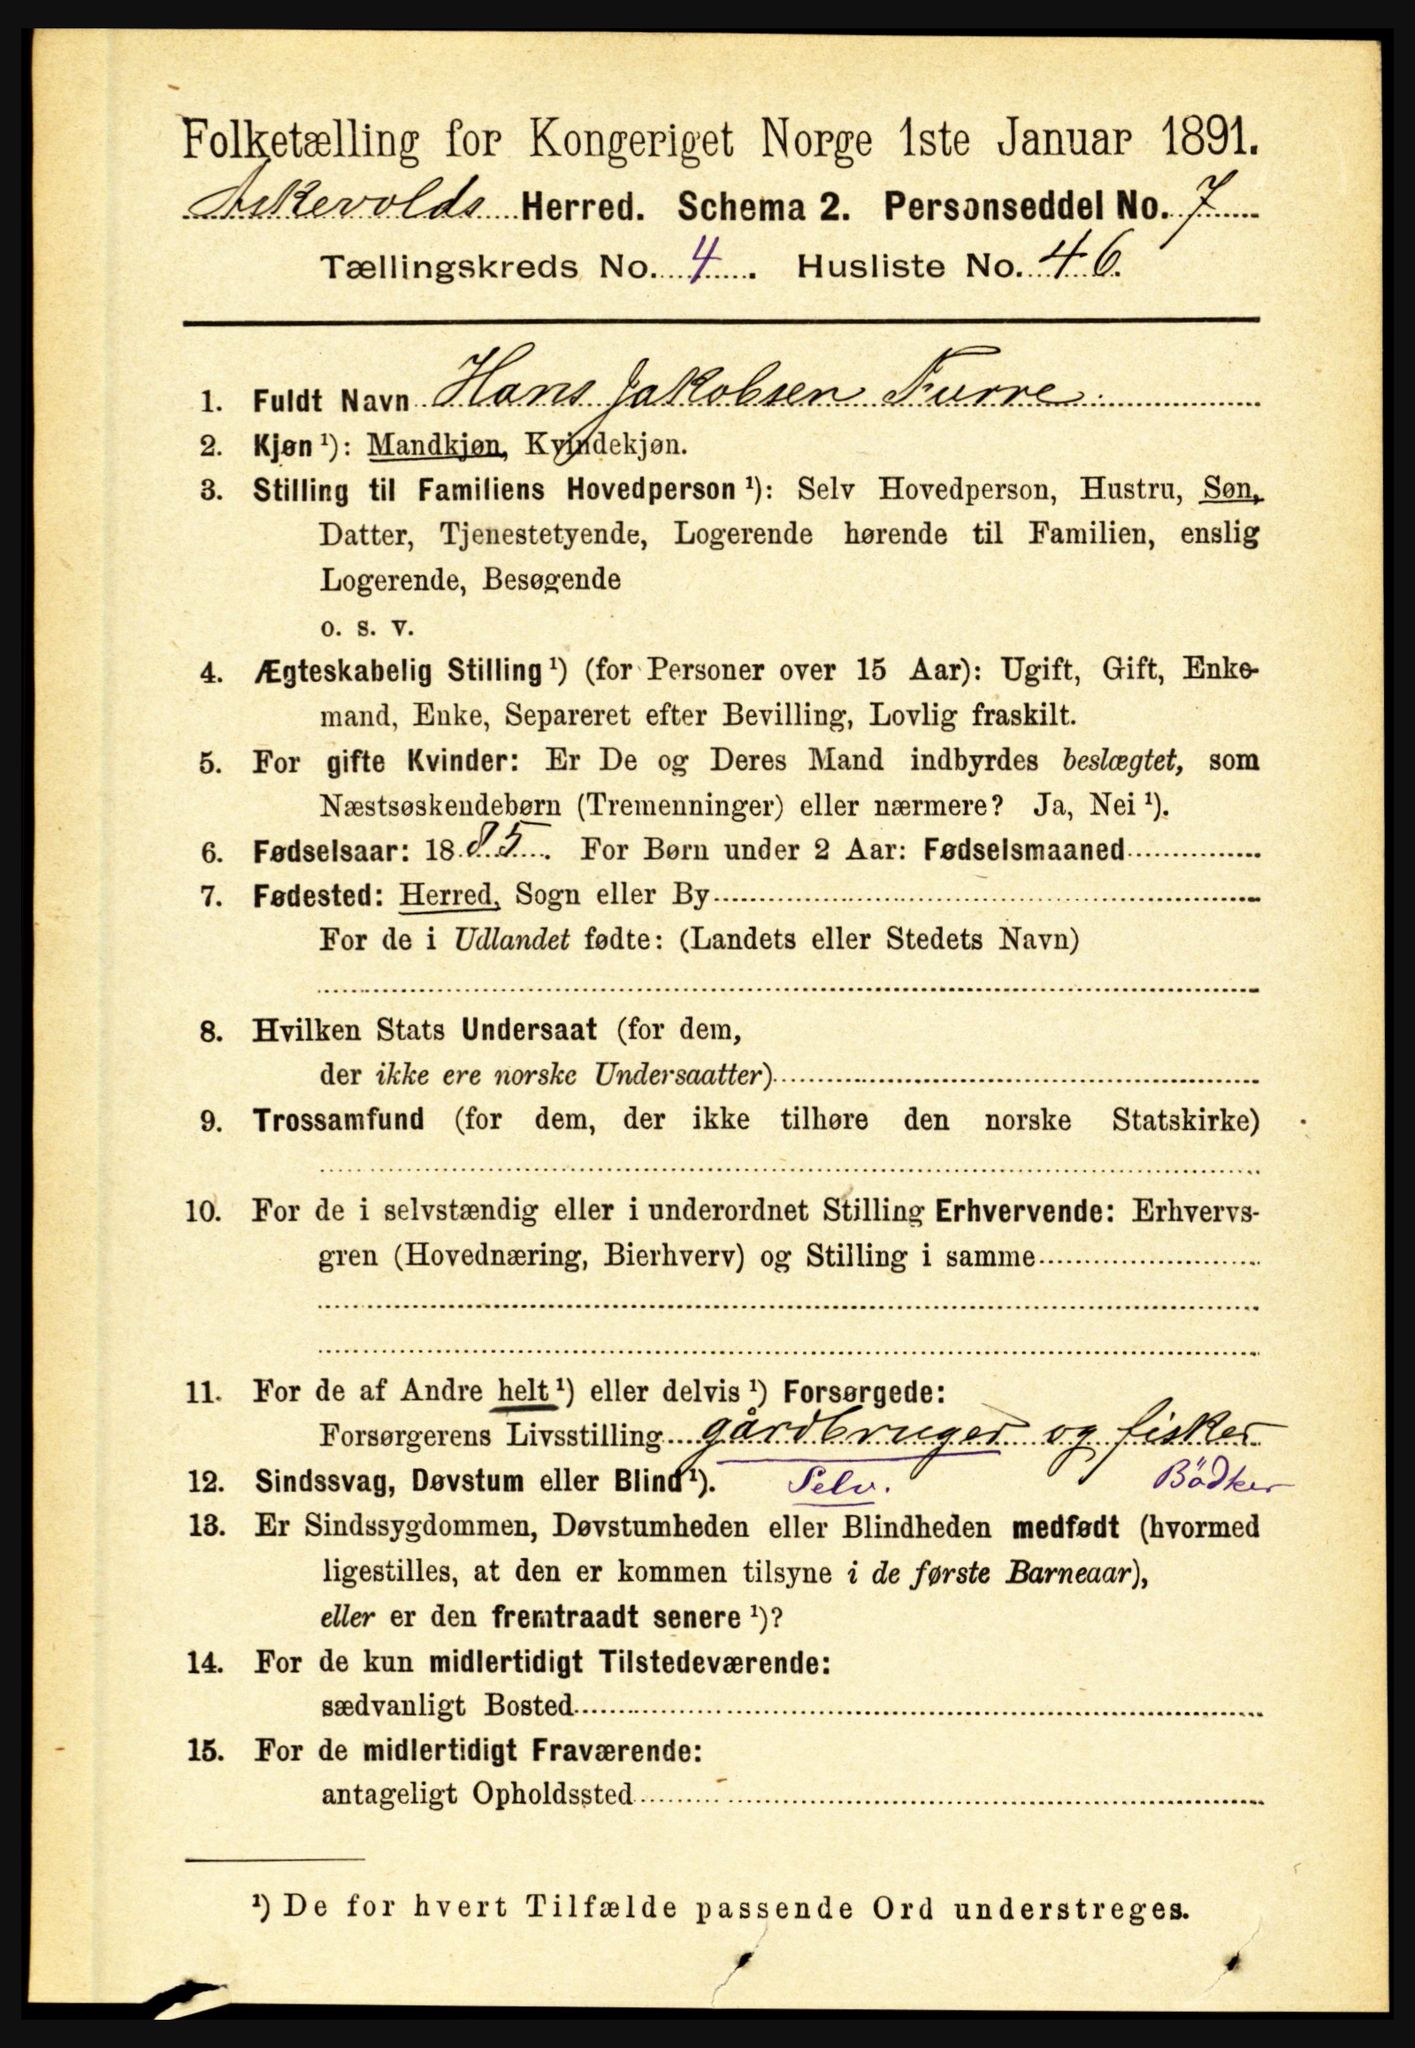 Folketælling for Kongeriget Norge 1ste Januar 1891.
Askevolds Herred. Schema 2. Personseddel No. 7
Tællingskreds No. 4. Husliste No. 46.
1. Fuldt Navn Hans Jakobsen Furre
2. Kjøn ¹): Mandkjøn, Kvindekjøn.
3. Stilling til Familiens Hovedperson ¹): Selv Hovedperson, Hustru, Søn,
Datter, Tjenestetyende, Logerende hørende til Familien, enslig
Logerende, Besøgende
o. s. v.
4. Ægteskabelig Stilling ¹) (for Personer over 15 Aar): Ugift, Gift, Enke-
mand, Enke, Separeret efter Bevilling, Lovlig fraskilt.
5. For gifte Kvinder: Er De og Deres Mand indbyrdes beslægtet, som
Næstsøskendebørn (Tremenninger) eller nærmere? Ja, Nei ¹).
6. Fødselsaar: 1885. For Børn under 2 Aar: Fødselsmaaned
7. Fødested: Herred, Sogn eller By
For de i Udlandet fødte: (Landets eller Stedets Navn)
8. Hvilken Stats Undersaat (for dem,
der ikke ere norske Undersaatter)
9. Trossamfund (for dem, der ikke tilhøre den norske Statskirke)
10. For de i selvstændig eller i underordnet Stilling Erhvervende: Erhvervs-
gren (Hovednæring, Bierhverv) og Stilling i samme
11. For de af Andre helt ¹) eller delvis ¹) Forsørgede:
Forsørgerens Livsstilling gårdbruger og fisker
12. Sindssvag, Døvstum eller Blind ¹). Selv. Bödker
13. Er Sindssygdommen, Døvstumheden eller Blindheden medfødt (hvormed
ligestilles, at den er kommen tilsyne i de første Barneaar),
eller er den fremtraadt senere ¹)?
14. For de kun midlertidigt Tilstedeværende:
sædvanligt Bosted
15. For de midlertidigt Fraværende:
antageligt Opholdssted
¹) De for hvert Tilfælde passende Ord understreges.